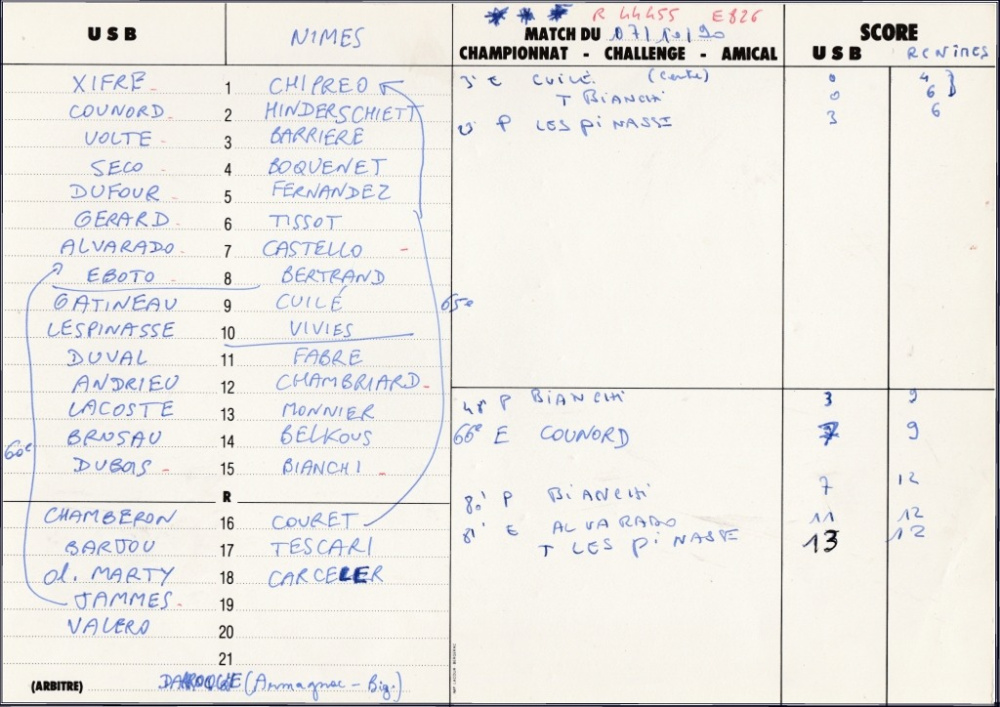 USB NIMES
*** R 44455 E826
MATCH DU 07/10/90
CHAMPIONNAT - CHALLENGE - AMICAL
SCORE
USB RC NIMES
XIFRE 1 CHIPREO
COUNORD 2 HINDERSCHIETT
VOLTE 3 BARRIERE
SECO 4 BOQUENET
DUFOUR 5 FERNANDEZ
GERARD 6 TISSOT
ALVARADO 7 CASTELLO
EBOTO 8 BERTRAND
GATINEAU 9 CUILÉ 65e
LESPINASSE 10 VIVIES
DUVAL 11 FABRE
ANDRIEU 12 CHAMBRIARD
LACOSTE 13 MONNIER
BRUSAU 14 BELKOUS
60e
DUBOIS 15 BIANCHI
R
CHAMBERON 16 COURET
BARJOU 17 TESCARI
Ol. MARTY 18 CARCELER
JAMMES 19
VALERO 20
21
(ARBITRE) (Armagnac - Big.)
3' E CUILÉ 0 4
T BIANCHI 0 6
P LESPINASSE 3 6
48' P BIANCHI 3 9
66e E COUNORD 7 9
80' P BIANCHI 7 12
81' E ALVARADO 11 12
T LESPINASSE 13 12